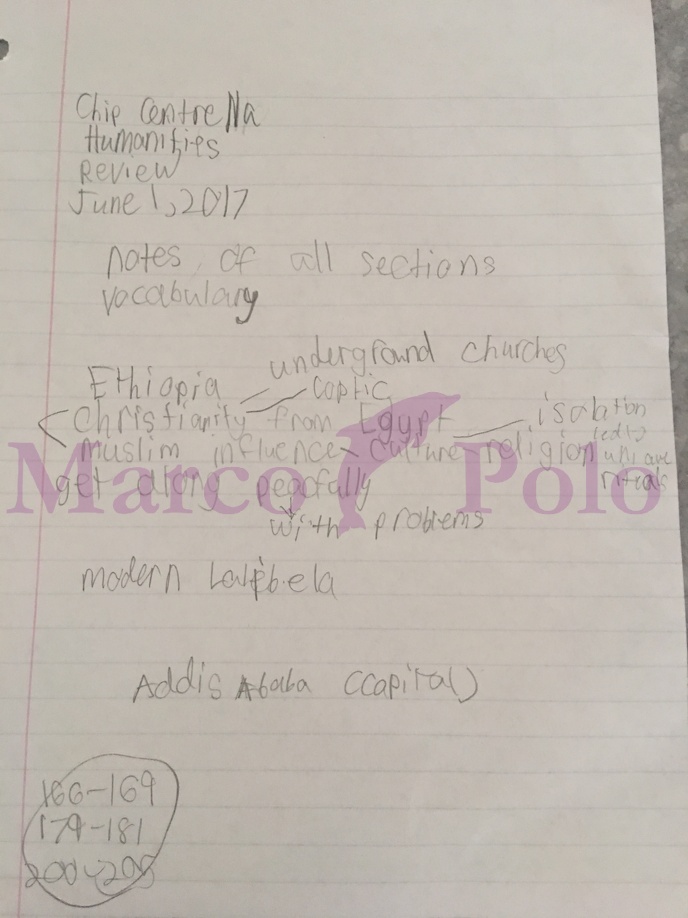 Chip Centre Na
Humanities
Review
June 1, 2017
notes of all sections
vocabulary
underground churches
Ethiopia
Coptic
Christianity from Egypt
isolation
muslim influence culture religion led to
rituals
get along peacfully
with problems
Marco Polo
modern
Addis Ababa (capital)
166-169
179-181